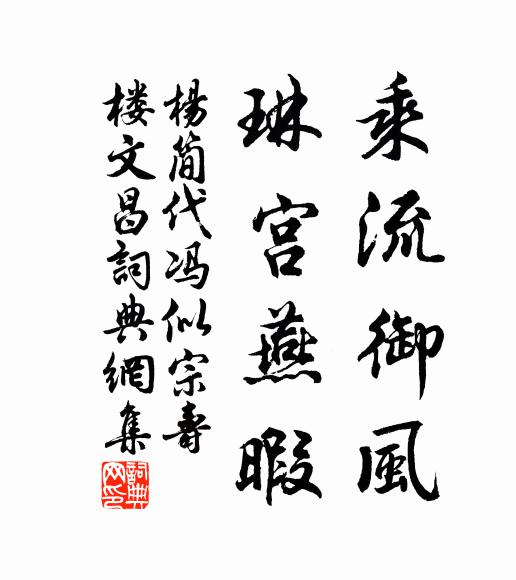 乘流御風
琳宫燕暇
楊简代冯似宗壽
楼文昌詞典網集
詞典網印